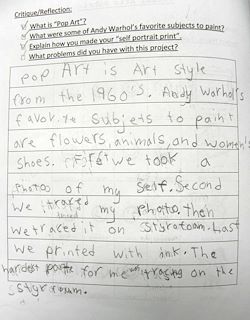 Critique/Reflection:
What is "Pop Art"?
What were some of Andy Warhol's favorite subjects to paint?
Explain how you made your "self portrait print".
What problems did you have with this project?
pop Art is Art style
from the 1960's. Andy Warhol's
favorite Subjets to paint
are flowers, animals, and women's
shoes. First we took a
photo of my Self. Second
We traced my photo. then
we traced it on Styrofoam. Last
We printed with ink. The
hardest part for me was tracing on the